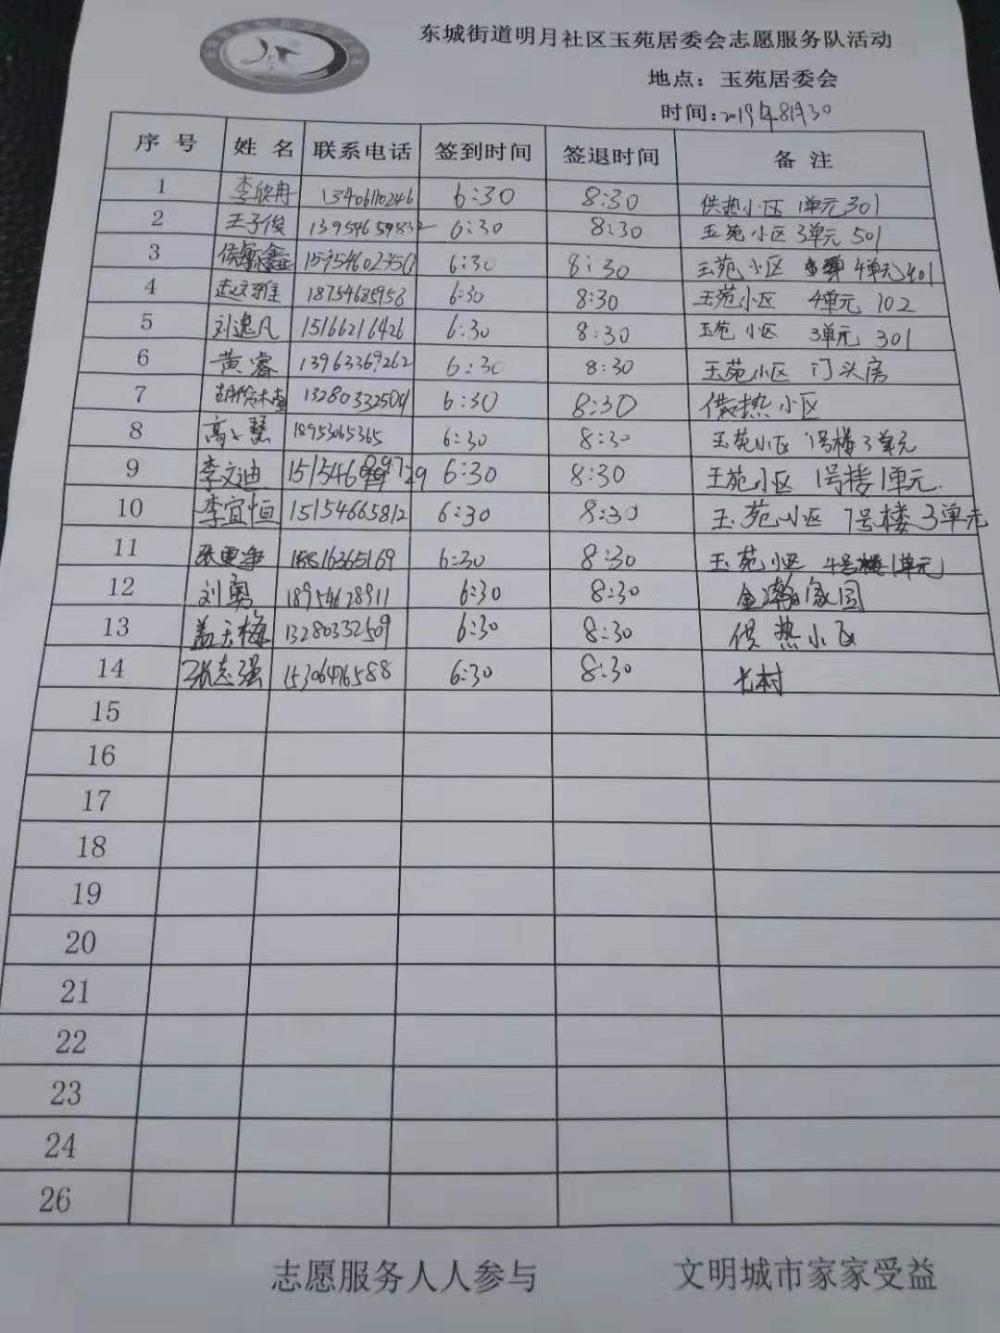 东城街道明月社区玉苑居委会志愿服务队活动
地点：玉苑居委会
时间:2019年8月30
序号 姓名 联系电话 签到时间 签退时间 备注
1 李欣冉 13406110246 6:30 8:30 供热小区 1单元301
2 王子俊 13954659832 6:30 8:30 玉苑小区 3单元 501
3 15954602350 6:30 8:30 玉苑小区 4单元401
4 18754685958 6:30 8:30 玉苑小区 4单元 102
5 刘逸凡 15166216426 6:30 8:30 玉苑小区 3单元 301
6 黄睿 13963369262 6:30 8:30 玉苑小区 门头房
7 13280332509 6:30 8:30 供热小区
8 高慧 18953065365 6:30 8:30 玉苑小区 1号楼3单元
9 李文迪 6:30 8:30 玉苑小区 1号楼1单元.
10 李宜恒 15154665812 6:30 8:30 玉苑小区 7号楼3单元
11 6:30 8:30 玉苑小区 4号楼1单元
12 刘勇 18954628911 6:30 8:30 金瀚家园
13 盖玉梅 13280332509 6:30 8:30 供热小区
14 张志强 15306476588 6:30 8:30
15
16
17
18
19
20
21
22
23
24
26
志愿服务人人参与 文明城市家家受益